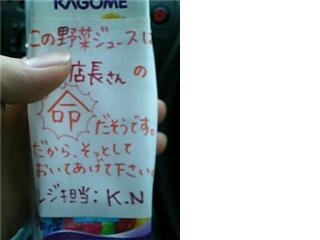 KAGOME
この野菜ジュースは
店長さんの
命
だそうです。
だから、そっとして
おいてあげて下さい。
レジ担当：K.N